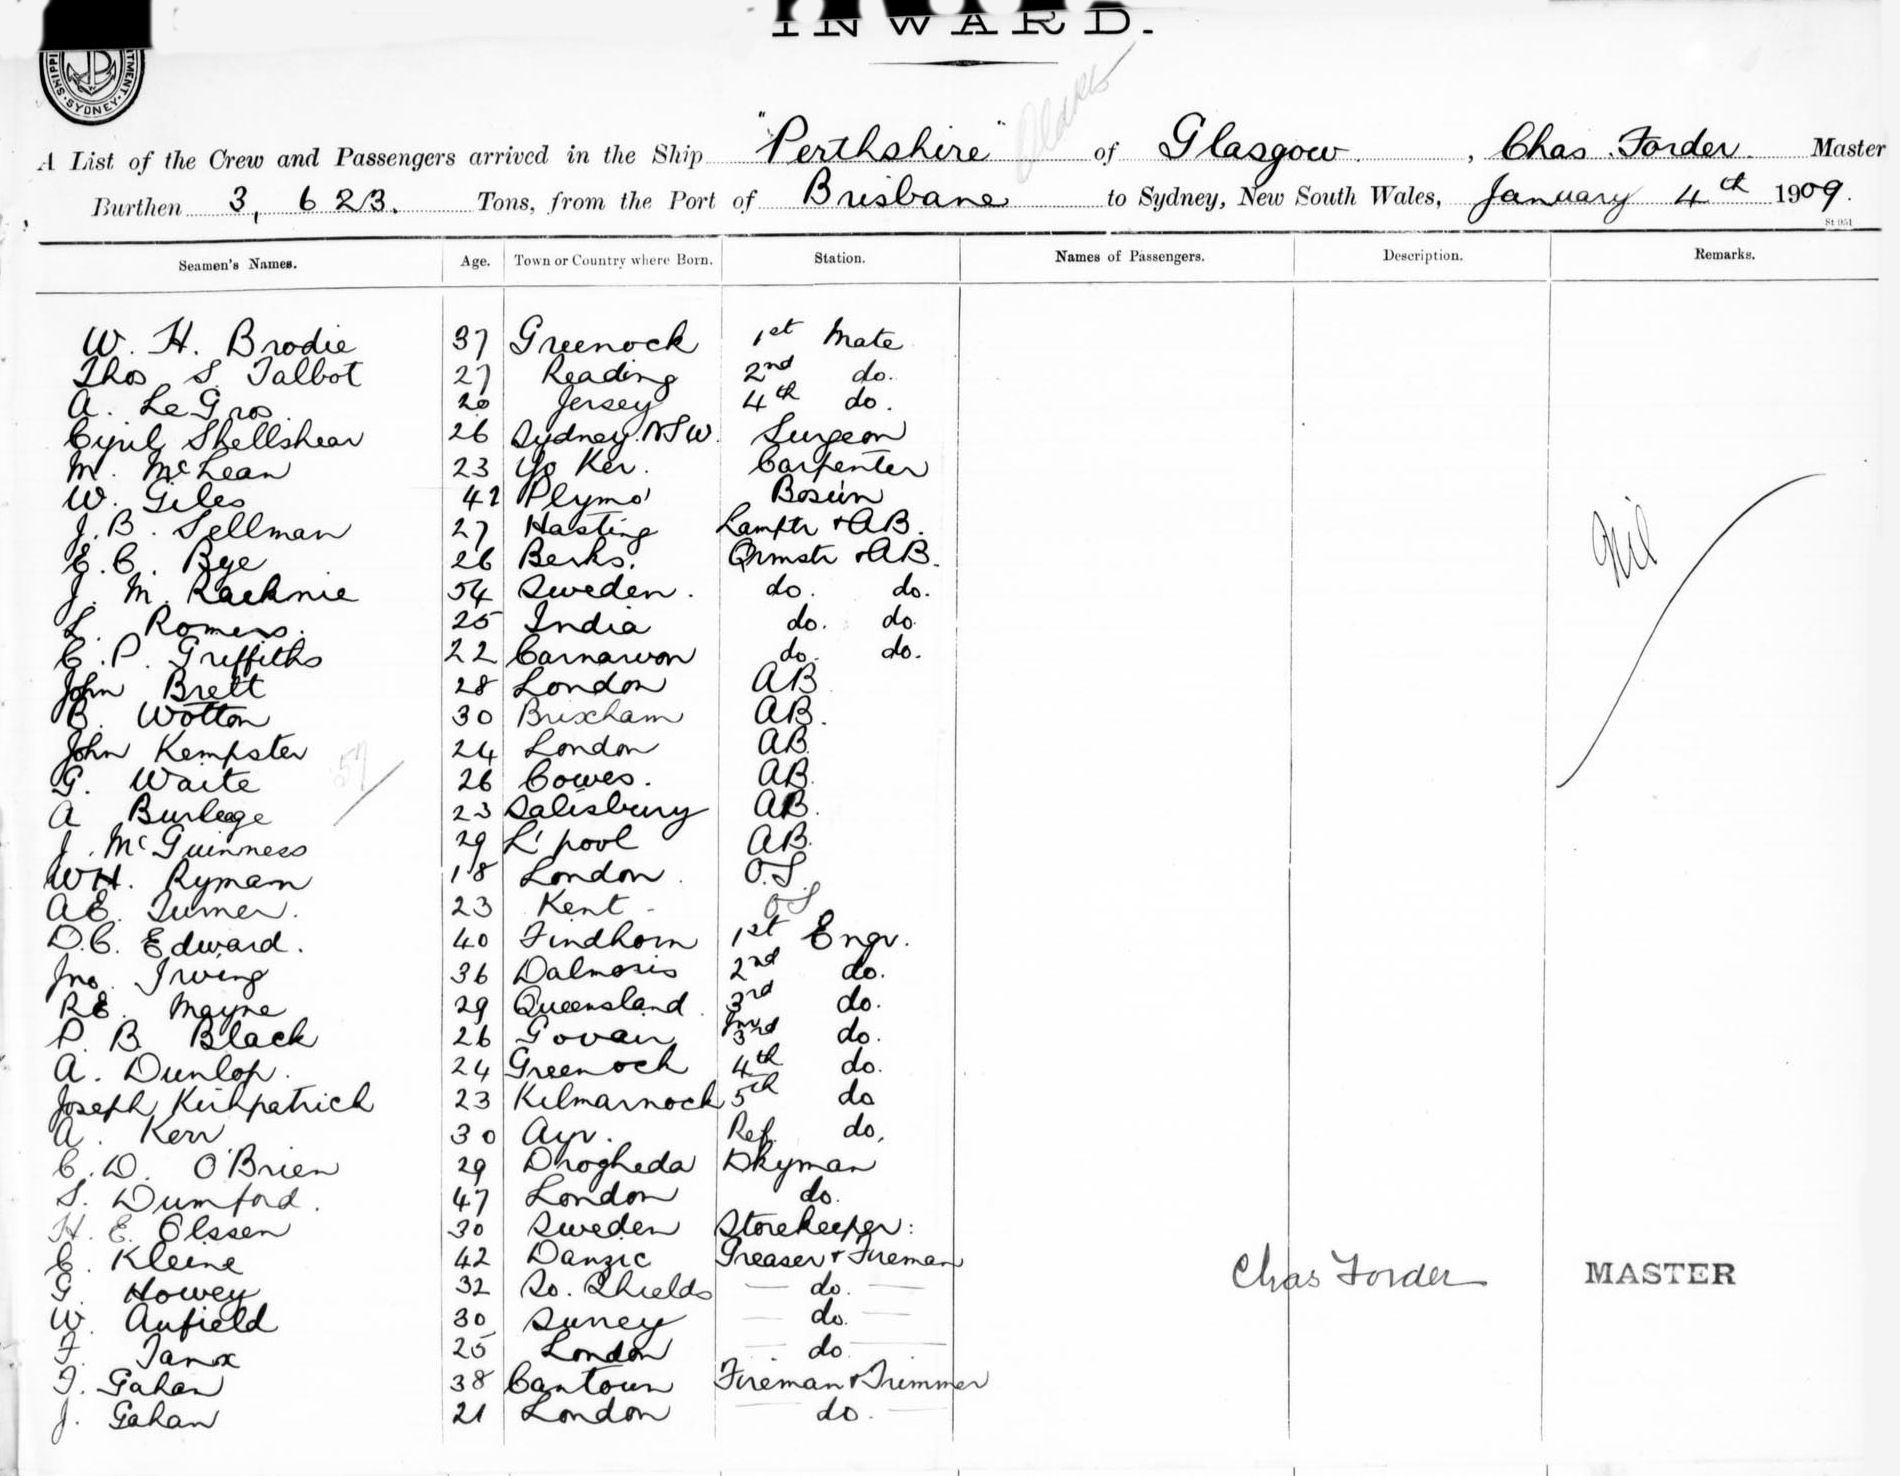 INWARD.
SHIPPING DEPARTMENT. SYDNEY.
A List of the Crew and Passengers arrived in the Ship "Perthshire" of Glasgow, Chas Forder Master
Burthen 3,623. Tons, from the Port of Brisbane to Sydney, New South Wales, January 4th 1909.
Seamen's Names. Age. Town or Country where Born. Station. Names of Passengers. Description. Remarks.
W. H. Brodie 37 Greenock 1st Mate
Thos S. Talbot 27 Reading 2nd do.
A. Le Gros 20 Jersey 4th do.
Cyril Shellshear 26 Sydney. NSW. Surgeon
M. McLean 23 Yo Ker. Carpenter
W. Giles 42 Plymo' Bosun
J. B. Sellman 27 Hasting Lamptr + AB.
E. C. Bye 26 Berks. Qrmstr + AB.
J. M. Racknie 54 Sweden. do. do.
L. Romers. 25 India do. do.
C. P. Griffiths 22 Carnarvon do. do.
John Brett 28 London AB
B. Wotton 30 Brixham AB.
John Kempster 24 London AB.
57
G. Waite 26 Cowes. AB.
A Burlege 23 Salisbury AB.
J. McGuinness 29 L'pool AB.
WH. Rymam 18 London. O.S.
AE. Turner. 23 Kent - OS
D.C. Edward. 40 Findhorn 1st Engr.
Jno. Irving 36 Dalmoris 2nd do.
RE. Mayne 29 Queensland. 3rd do.
P. B Black 26 Govan Jnr 3rd do.
A. Dunlop. 24 Greenock 4th do.
Joseph Kirkpatrick 23 Kilmarnock 5th do
A. Kerr 30 Ayr. Ref. do,
C. D. O'Brien 29 Drogheda Dkyman
S. Dumford. 47 London do.
H. E. Olssen 30 Sweden Storekeeper:
C. Kleine 42 Danzic Greaser + Fireman
G. Howey 32 So. Shields do.
W. Anfield 30 Surrey do.
F. Tanx 25 London do.
T. Gahan 38 Cantown Fireman + Trimmer
J. Gahan 21 London do.
Nil
Chas Forder MASTER